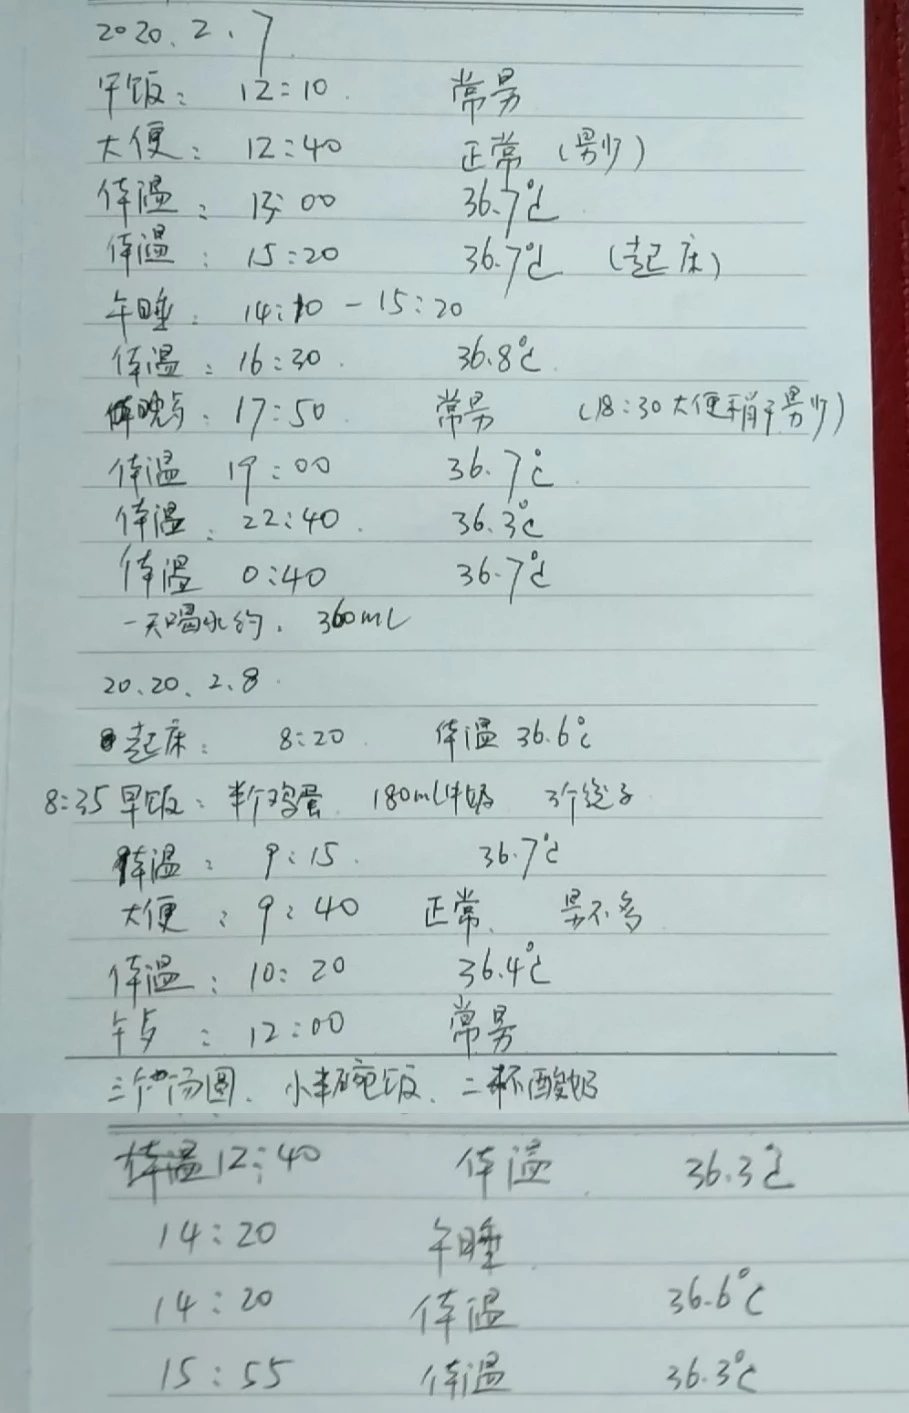 2020.2.7
午饭：12:10 常量
大便：12:40 正常（量少）
体温：13:00 36.7℃
体温：15:20 36.7℃（起床）
午睡：14:10-15:20
体温：16:30 36.8℃
晚歺：17:50 常量（18:30大便稍干量少）
体温 19:00 36.7℃
体温：22:40 36.3℃
体温 0:40 36.7℃
一天喝水约：360mL
20.20.2.8
起床：8:20 体温36.6℃
8:35早饭：半个鸡蛋 180mL牛奶 3个饺子
体温：9:15 36.7℃
大便：9:40 正常、量不多
体温：10:20 36.4℃
午歺：12:00 常量
三个汤圆、小半碗饭、二杯酸奶
12:40 体温 36.3℃
14:20 午睡
14:20 体温 36.6℃
15:55 体温 36.3℃